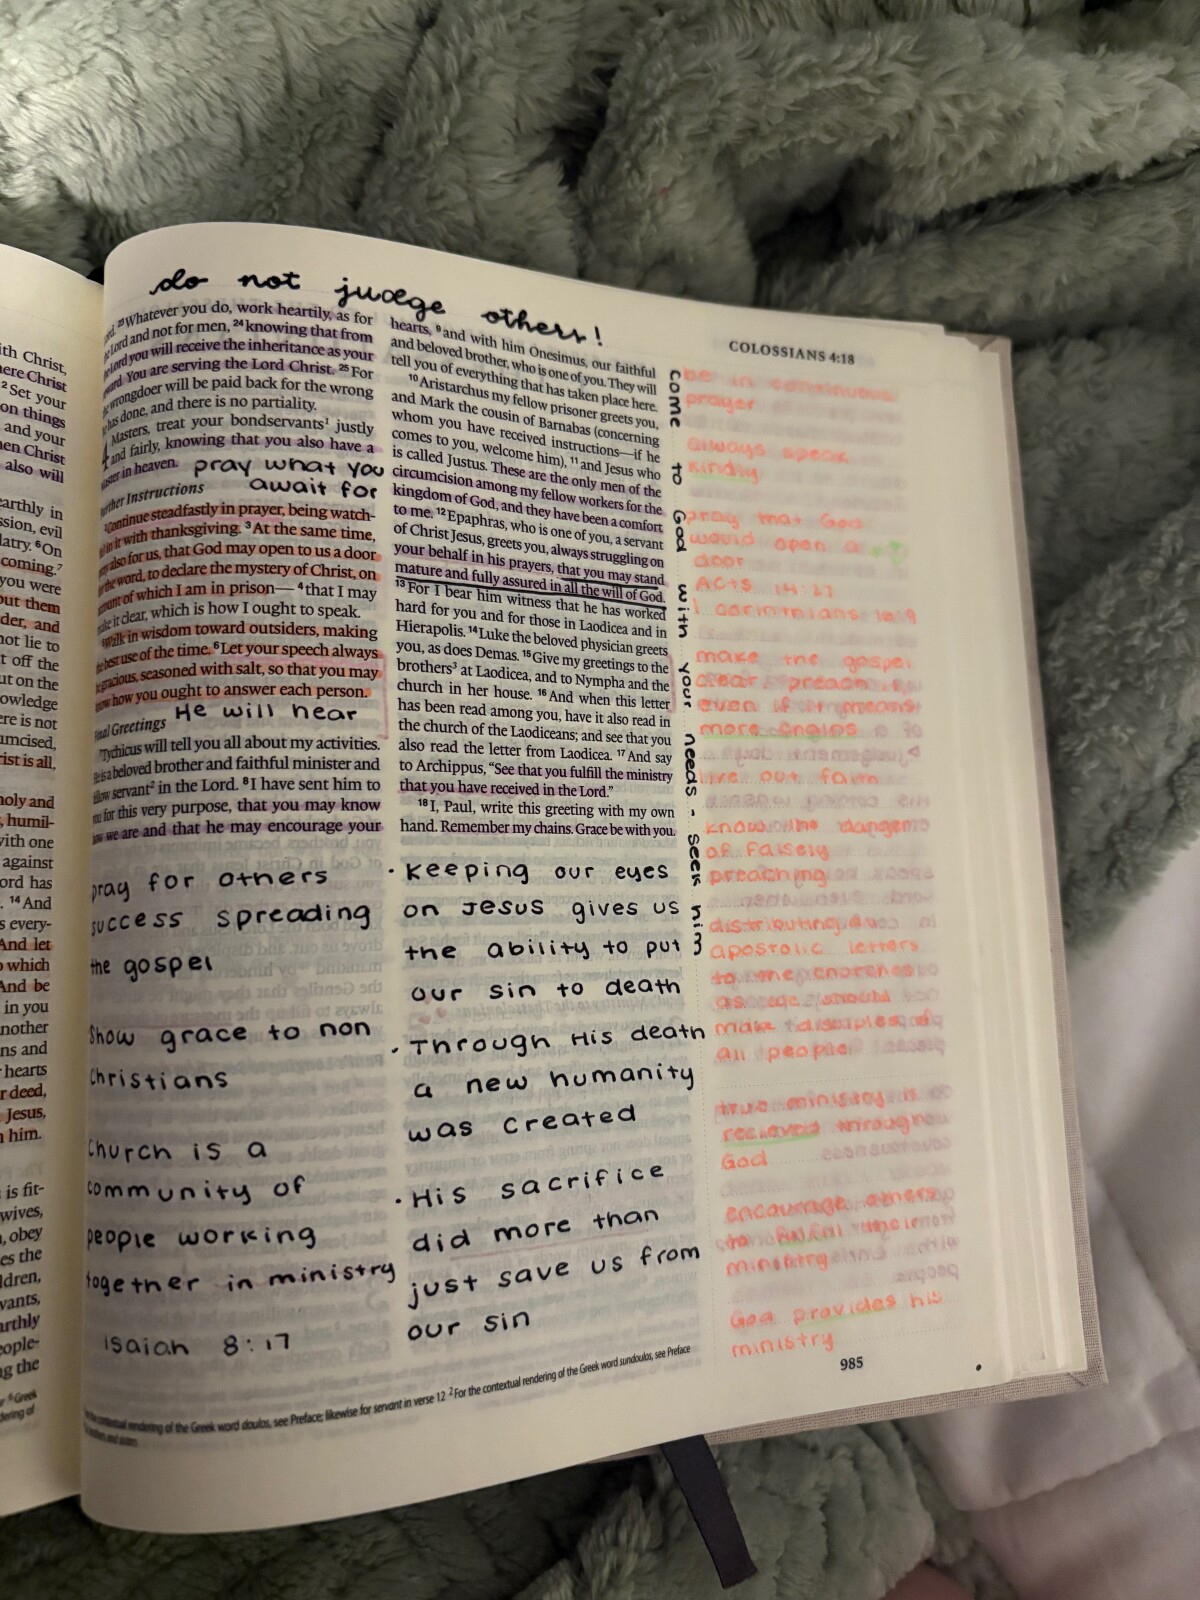 do not judge others!
COLOSSIANS 4:18
23 Whatever you do, work heartily, as for
Lord and not for men, 24 knowing that from
Lord you will receive the inheritance as your
You are serving the Lord Christ. 25 For
wrongdoer will be paid back for the wrong
has done, and there is no partiality.
4 Masters, treat your bondservants¹ justly
and fairly, knowing that you also have a
in heaven.
pray what you
await for
Instructions
2 Continue steadfastly in prayer, being watch-
in it with thanksgiving. 3 At the same time,
also for us, that God may open to us a door
the word, to declare the mystery of Christ, on
of which I am in prison— 4 that I may
it clear, which is how I ought to speak.
Walk in wisdom toward outsiders, making
best use of the time. 6 Let your speech always
gracious, seasoned with salt, so that you may
how you ought to answer each person.
He will hear
Greetings
7 Tychicus will tell you all about my activities.
He is a beloved brother and faithful minister and
servant² in the Lord. 8 I have sent him to
you for this very purpose, that you may know
we are and that he may encourage your
pray for others
success spreading
the gospel
Show grace to non
Christians
Church is a
community of
people working
together in ministry
Isaiah 8:17
hearts, 9 and with him Onesimus, our faithful
and beloved brother, who is one of you. They will
tell you of everything that has taken place here.
10 Aristarchus my fellow prisoner greets you,
and Mark the cousin of Barnabas (concerning
whom you have received instructions—if he
comes to you, welcome him), 11 and Jesus who
is called Justus. These are the only men of the
circumcision among my fellow workers for the
kingdom of God, and they have been a comfort
to me. 12 Epaphras, who is one of you, a servant
of Christ Jesus, greets you, always struggling on
your behalf in his prayers, that you may stand
mature and fully assured in all the will of God.
13 For I bear him witness that he has worked
hard for you and for those in Laodicea and in
Hierapolis. 14 Luke the beloved physician greets
you, as does Demas. 15 Give my greetings to the
brothers³ at Laodicea, and to Nympha and the
church in her house. 16 And when this letter
has been read among you, have it also read in
the church of the Laodiceans; and see that you
also read the letter from Laodicea. 17 And say
to Archippus, “See that you fulfill the ministry
that you have received in the Lord.”
18 I, Paul, write this greeting with my own
hand. Remember my chains. Grace be with you.
· Keeping our eyes
on Jesus gives us
the ability to put
our sin to death
· Through His death
a new humanity
was created
· His sacrifice
did more than
just save us from
our sin
come to God with your needs - seek him
be in continuous
prayer
always speak
kindly
pray that God
would open a
door
Acts 14:27
1 corinthians 16:9
make the gospel
clear, preach it,
even if it means
more chains
live out faith
know the dangers
of falsely
preaching
distributing
apostolic letters
to the churches
as we should
make disciples of
all people
true ministry is
recieved through
God
encourage others
to fulfill their
ministry
God provides his
ministry
rendering of the Greek word doulos, see Preface; likewise for servant in verse 12 ² For the contextual rendering of the Greek word sundoulos, see Preface
985
ith Christ,
here Christ
2 Set your
on things
and your
hen Christ
also will
earthly in
ssion, evil
latry. 6 On
coming.⁷
you were
out them
der, and
not lie to
t off the
ut on the
owledge
ere is not
umcised,
rist is all,
holy and
humil-
with one
against
ord has
14 And
s every-
And let
o which
And be
in you
nother
ns and
hearts
r deed,
Jesus,
h him.
is fit-
wives,
, obey
es the
ldren,
vants,
arthly
eople-
ng the